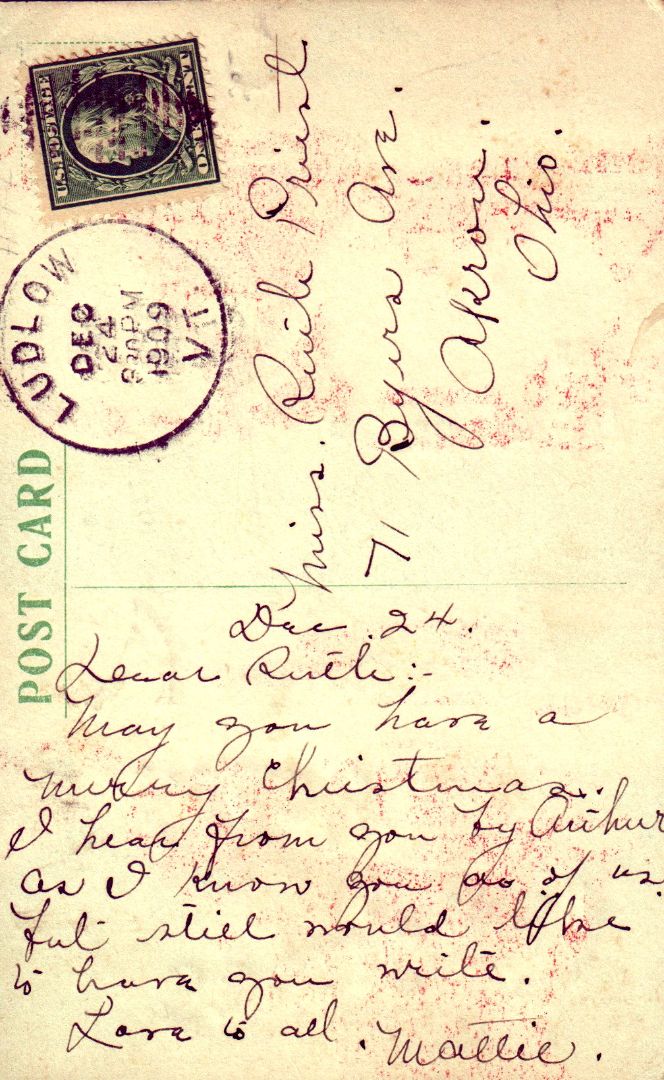 U.S. POSTAGE
ONE CENT
LUDLOW
DEC
24
PM
1909
VT.
POST CARD
Miss. Ruth Priest
71 Byers Ave.
Akron.
Ohio.
Dec. 24.
Dear Ruth:-
May you have a
merry Christmas.
I hear from you by Arthur
as I know you do of us.
but still would like
to have you write.
Love to all. Mattie.